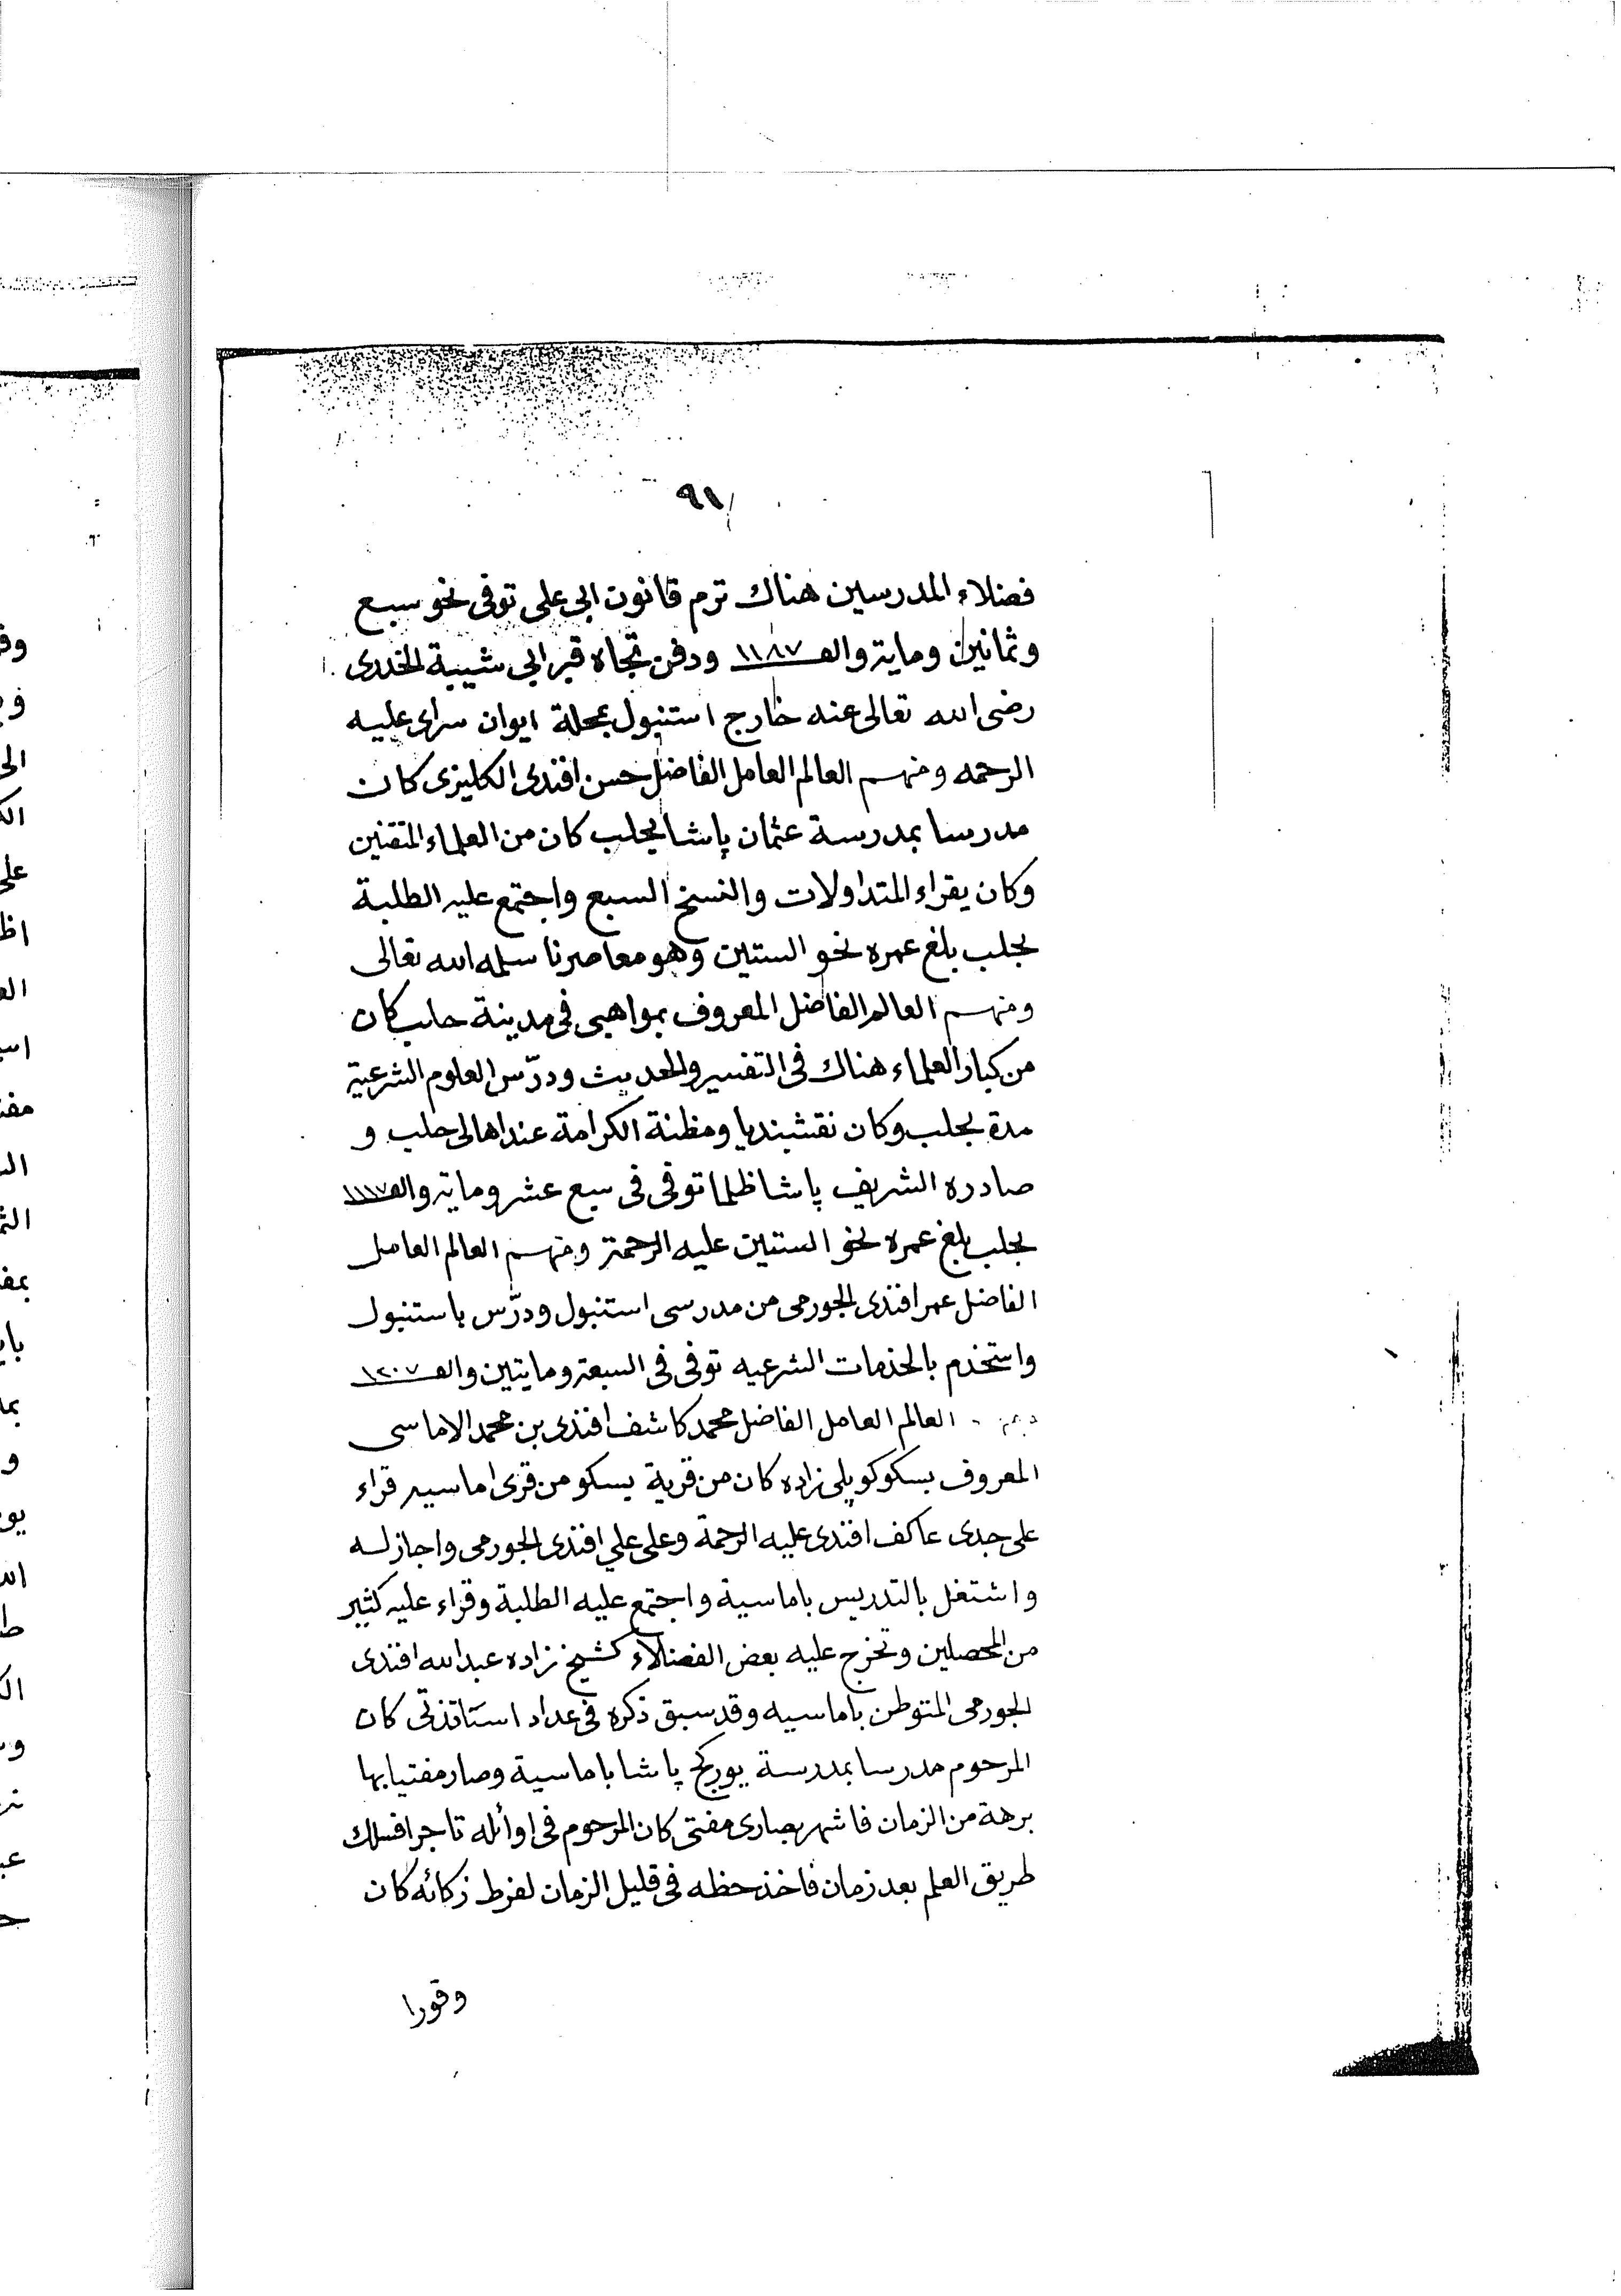 ٩١
فضلاء المدرسين هناك ترم قانون ابى على توفى نحو سبع
وثمانين وماية والف ١١٨٧ ودفن تجاه قبر ابي شيبة الخدرى
رضى الله تعالى عنه خارج استنبول بمحلة ايوان سراى عليه
الرحمه ومنهم العالم العامل الفاضل حسن افندى الكليزى كان
مدرسا بمدرسة عثمان پاشا بحلب كان من العلماء المتقنين
وكان يقراء المتداولات والنسخ السبع واجتمع عليه الطلبة
بحلب بلغ عمره نحو الستين وهو معاصرنا سلمه الله تعالى
ومنهم العالم الفاضل المعروف بمواهبى فى مدينة حلب كان
من كبار العلماء هناك فى التفسير والحديث ودرّس العلوم الشرعية
مدة بحلب وكان نقشبنديا ومظنة الكرامة عند اهالى حلب و
صادره الشريف پاشا ظلما توفى فى سبع عشر وماية والف ١١١٧
بحلب بلغ عمره نحو الستين عليه الرحمة ومنهم العالم العامل
الفاضل عمر افندى الجورمى من مدرسى استنبول ودرّس باستنبول
واستخدم بالخدمات الشرعيه توفى فى السبعة ومايتين والف ١٢٠٧
العالم العامل الفاضل محمد كاشف افندى بن محمد الاماسى
المعروف بسكوكويلى زاده كان من قرية بسكو من قرى اماسيه قراء
على جدى عاكف افندى عليه الرحمة وعلى علي افندى الجورمى واجاز له
واشتغل بالتدريس باماسية واجتمع عليه الطلبة وقراء عليه كثير
من المحصلين وتخرج عليه بعض الفضلاء كشيخ زاده عبد الله افندى
الجورمى المتوطن باماسيه وقد سبق ذكره فى عداد استاتذتى كان
المرحوم مدرسا بمدرسة يوركج پاشا باماسية وصار مفتيا بها
برهة من الزمان فاشهر بصارى مفتى كان المرحوم فى اوائله تاجرا فسلك
طريق العلم بعد زمان فاخذ حظه فى قليل الزمان لفرط زكائه كان
وقورا